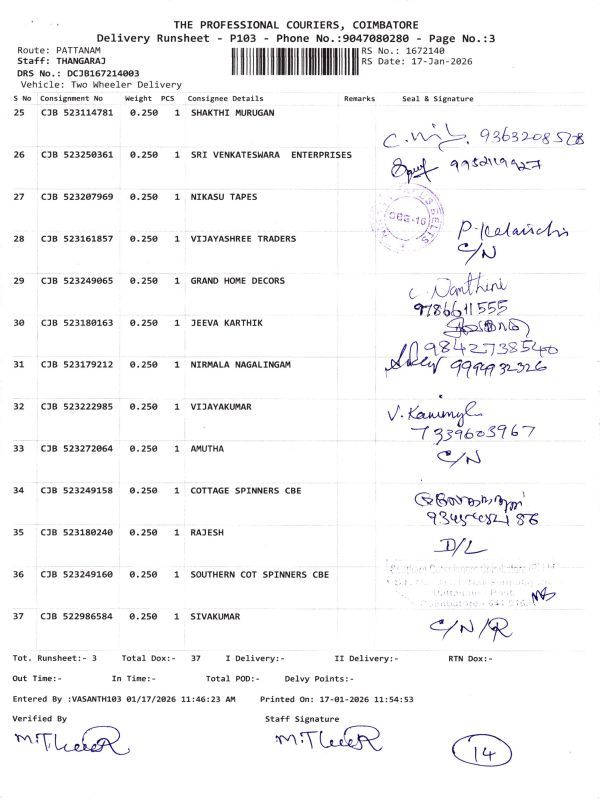 THE PROFESSIONAL COURIERS, COIMBATORE
Delivery Runsheet - P103 - Phone No.:9047080280 - Page No.:3
Route: PATTANAM
RS No.: 1672140
Staff: THANGARAJ
RS Date: 17-Jan-2026
DRS No.: DCJB167214003
Vehicle: Two Wheeler Delivery
S No Consignment No Weight PCS Consignee Details Remarks Seal & Signature
25 CJB 523114781 0.250 1 SHAKTHI MURUGAN
9363208528
26 CJB 523250361 0.250 1 SRI VENKATESWARA ENTERPRISES
27 CJB 523207969 0.250 1 NIKASU TAPES
28 CJB 523161857 0.250 1 VIJAYASHREE TRADERS
C/N
29 CJB 523249065 0.250 1 GRAND HOME DECORS
C. Nanthini
9786611555
30 CJB 523180163 0.250 1 JEEVA KARTHIK
9842738540
31 CJB 523179212 0.250 1 NIRMALA NAGALINGAM
9994932326
32 CJB 523222985 0.250 1 VIJAYAKUMAR
7339603967
33 CJB 523272064 0.250 1 AMUTHA
C/N
34 CJB 523249158 0.250 1 COTTAGE SPINNERS CBE
35 CJB 523180240 0.250 1 RAJESH
D/L
36 CJB 523249160 0.250 1 SOUTHERN COT SPINNERS CBE
37 CJB 522986584 0.250 1 SIVAKUMAR
C/N/R
Tot. Runsheet:- 3 Total Dox:- 37 I Delivery:- II Delivery:- RTN Dox:-
Out Time:- In Time:- Total POD:- Delvy Points:-
Entered By :VASANTH103 01/17/2026 11:46:23 AM Printed On: 17-01-2026 11:54:53
Verified By Staff Signature
14